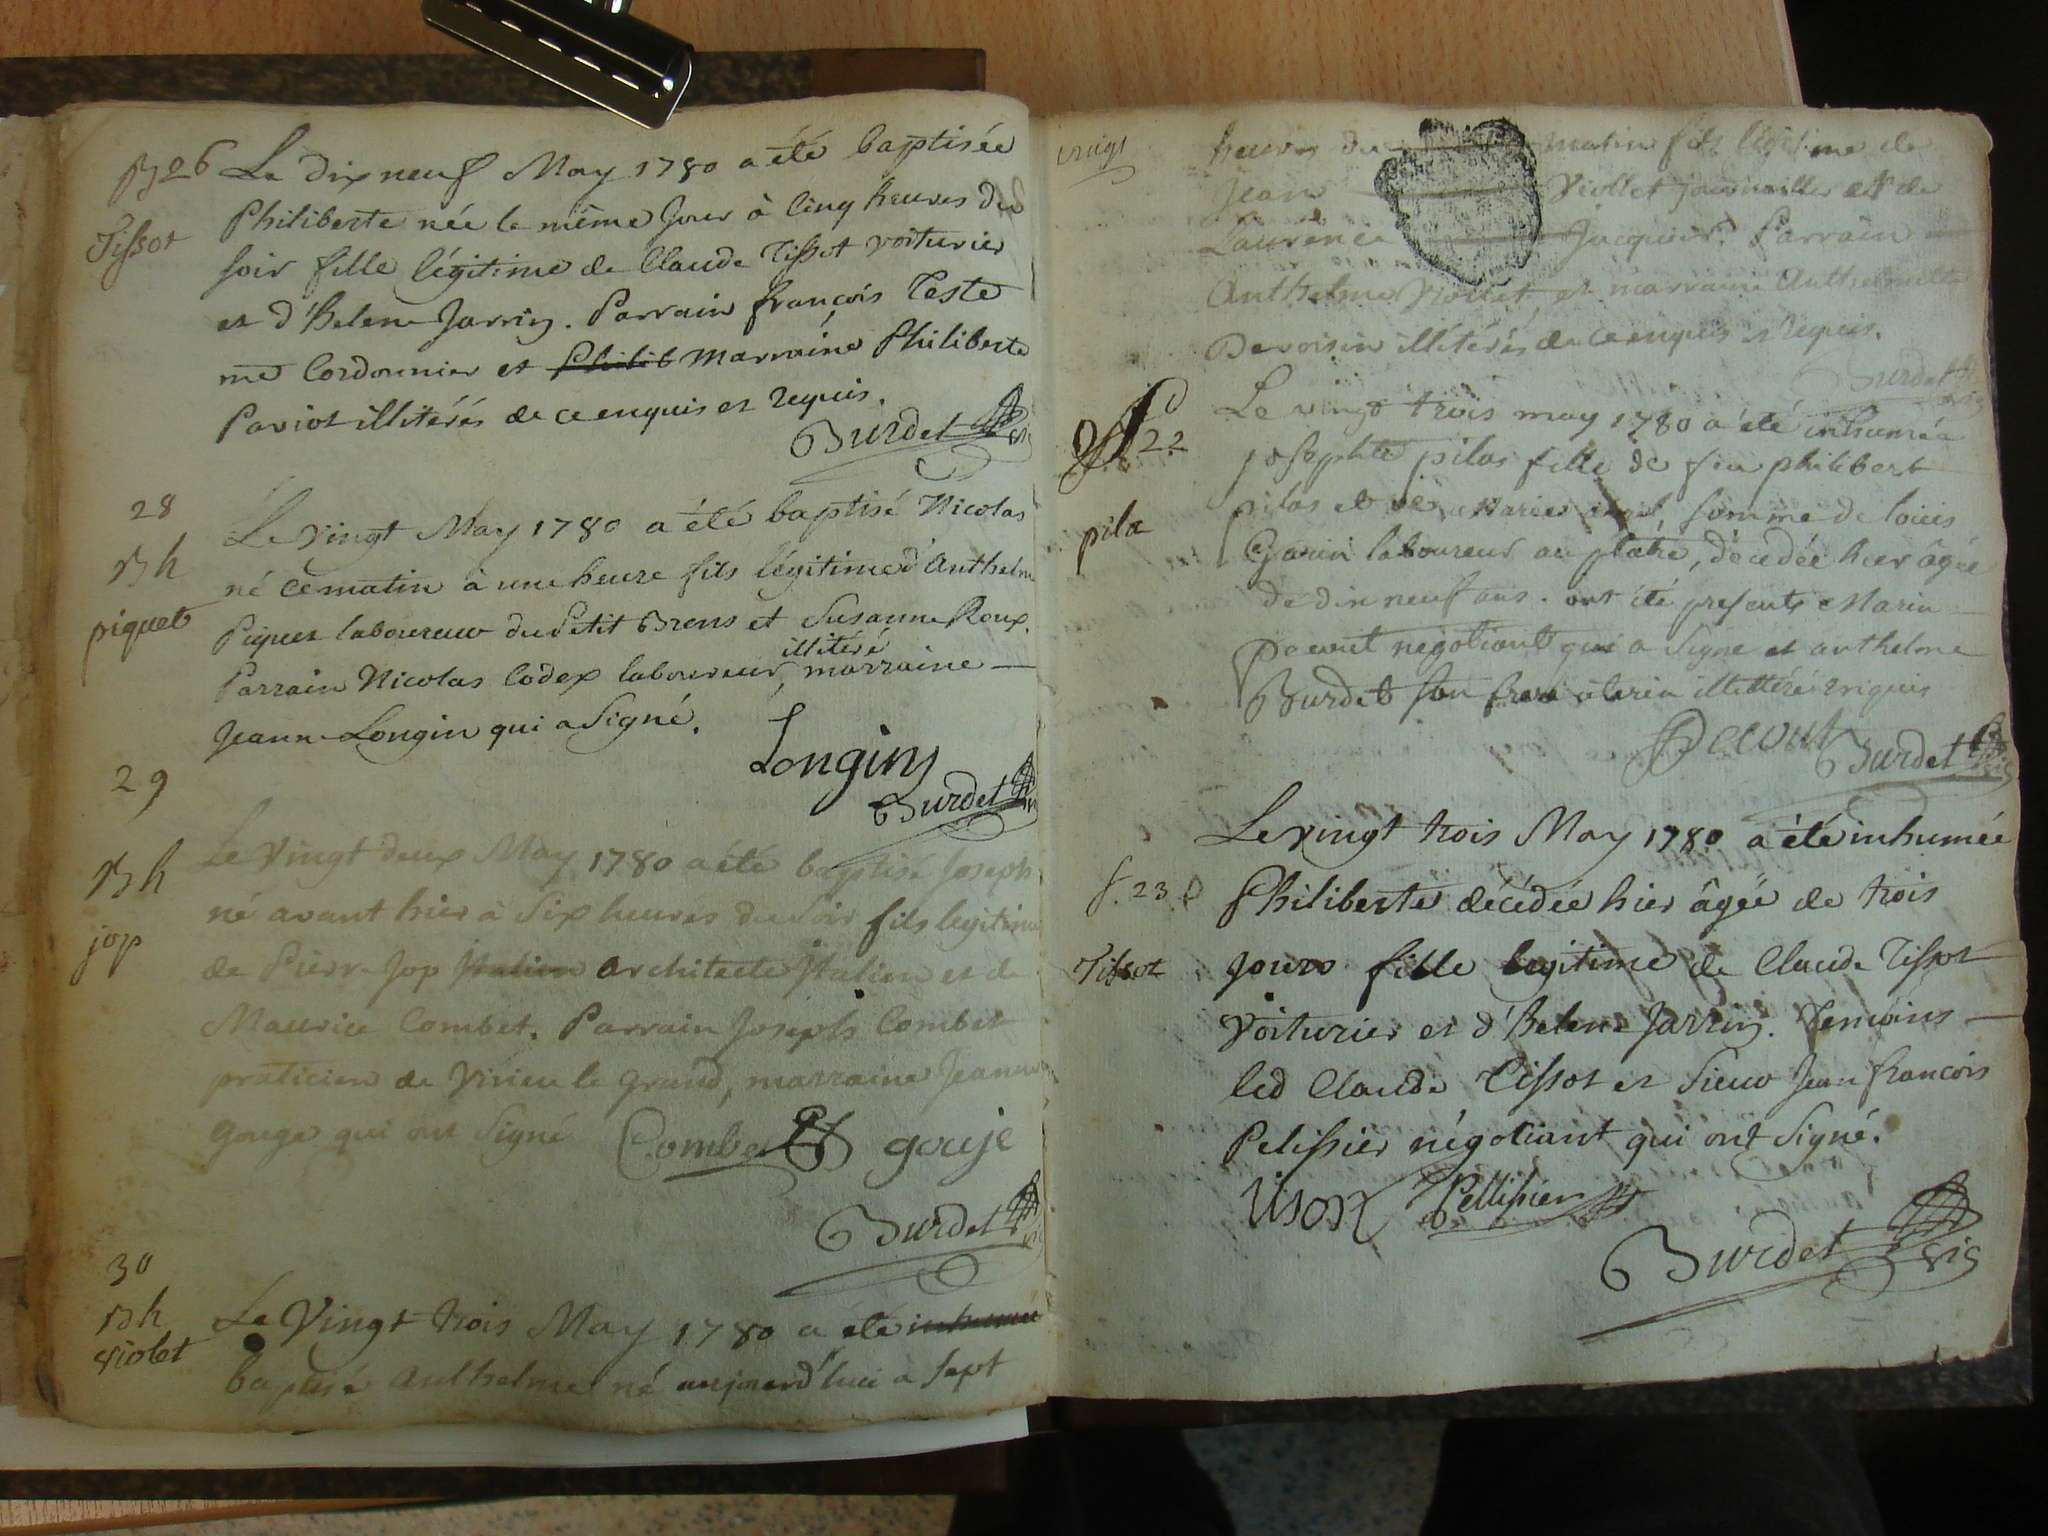 B 26
Tissot
Le dix neuf May 1780 a été baptisée
Philiberte née le même jour à cinq heures du
soir fille légitime de Claude Tissot voiturier
et d'helene Jarrin. Parrain françois Teste
me Cordonnier et Philib marraine Philiberte
Paviot illitérés de ce enquis et requis.
Burdet
28
Bh
piquet
Le vingt May 1780 a été baptisé Nicolas
né ce matin à une heure fils légitime d'Anthelme
Piquet laboureur du Petit Brens et Susanne Roux.
Parrain Nicolas Codex laboureur illitéré, marraine
Jeanne Longin qui a signé.
Longin
Burdet
29
Bh
jop
Le vingt deux May 1780 a été baptisé Joseph
né avant hier à six heures du soir fils legitime
de Pierre Jop Italien architecte Italien et de
Maurice Combet. Parrain Joseph Combet
praticien de Virieu le grand, marraine Jeanne
gouge qui ont signé
Combet gouje
Burdet
30
Bh
violet
Le Vingt trois May 1780 a été inhumée
baptisé Anthelme né aujourd'hui a sept
vingt
heures du matin fils légitime de
Jean Viollet journallier et de
Laurence Jacquier. Parrain
Anthelme Viollet et marraine Anthelmette
Devoisin illitérés de ce enquis et requis.
Burdet
22
pila
Le vingt trois may 1780 a été inhumée
josephte pilas fille de feu philibert
pilas et de Marie femme de louis
Garin laboureur au platre, décedée hier âgée
de dix neuf ans. ont été presents Marin
Decout negotiant qui a signé et anthelme
Burdet son frere illitéré requis
Decout Burdet
f. 23
Tissot
Le vingt trois May 1780 a été inhumée
Philiberte décédée hier âgée de trois
jours fille legitime de Claude Tissot
voiturier et d'helene Jarrin. Temoins
led Claude Tissot et sieur Jean françois
Pelissier négotiant qui ont signé.
tisot Pellissier
Burdet